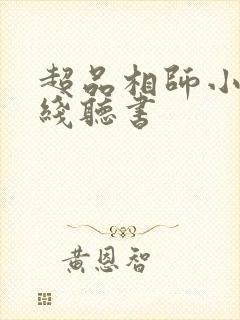 超品相師小
綫聽書
黄恩智